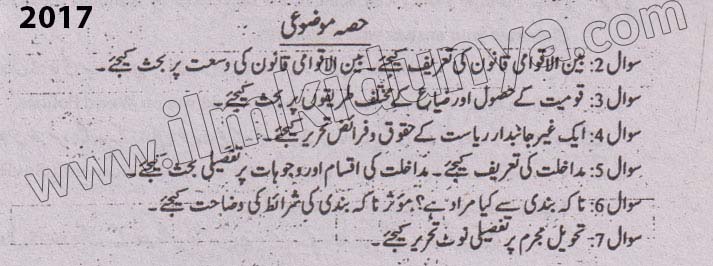 2017
حصہ موضوعی
سوال 2: بین الاقوامی قانون کی تعریف کیجئے۔ بین الاقوامی قانون کی وسعت پر بحث کیجئے۔
سوال 3: قومیت کے حصول اور ضیاع کے مختلف طریقوں پر بحث کیجئے۔
سوال 4: ایک غیر جانبدار ریاست کے حقوق و فرائض تحریر کیجئے۔
سوال 5: مداخلت کی تعریف کیجئے۔ مداخلت کی اقسام اور وجوہات پر تفصیلی بحث کیجئے۔
سوال 6: ناکہ بندی سے کیا مراد ہے؟ مؤثر ناکہ بندی کی شرائط کی وضاحت کیجئے۔
سوال 7: تحویل مجرم پر تفصیلی نوٹ تحریر کیجئے۔
www.ilmkidunya.com